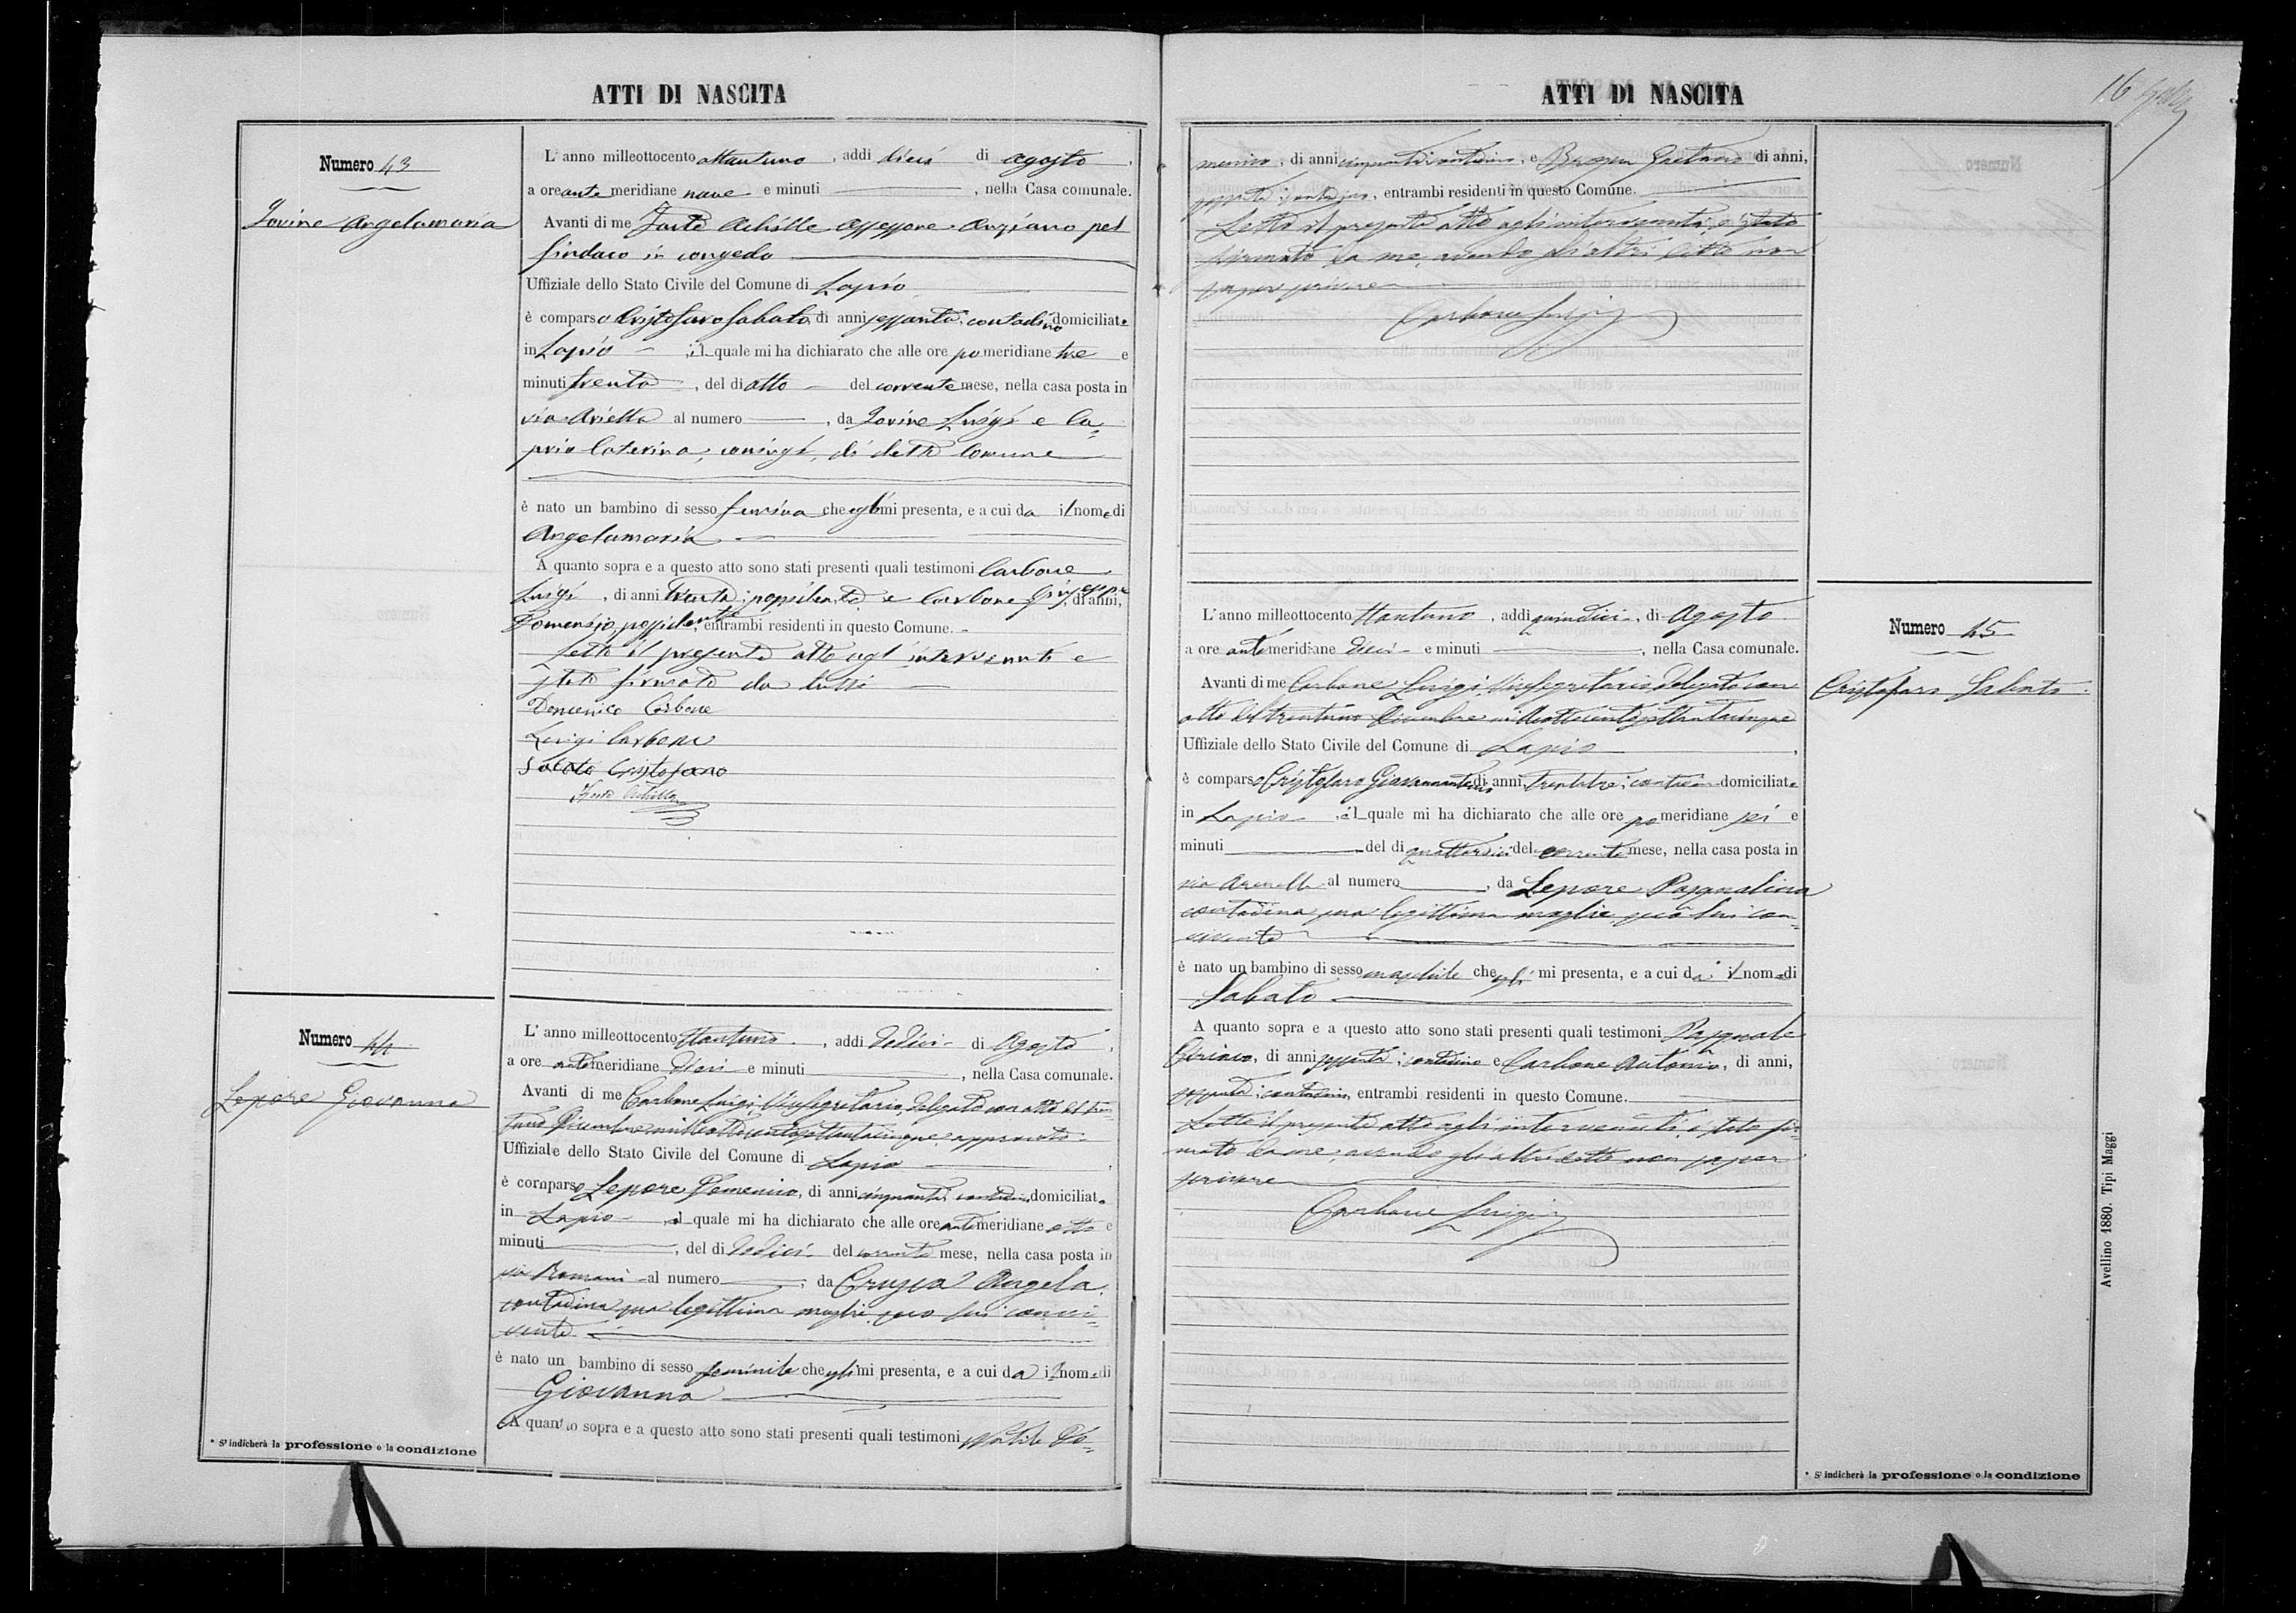 ATTI DI NASCITA
Numero 43
Iovine Angelamaria
L'anno milleottocento ottantuno, addi dieci di agosto,
a ore ante meridiane nove e minuti, nella Casa comunale.
Avanti di me Forte Achille Assessore Anziano pel
Sindaco in congedo
Uffiziale dello Stato Civile del Comune di Lapio
è comparso Cristofaro Sabato, di anni sessanta, contadino domiciliato
in Lapio, il quale mi ha dichiarato che alle ore pomeridiane tre e
minuti trenta, del dì otto del corrente mese, nella casa posta in
via Ariella al numero, da Iovine Luigi e Ca=
prio Caterina, coniugi, di detto Comune
è nato un bambino di sesso che egli mi presenta, e a cui da il nome di
Angelamaria
A quanto sopra e a questo atto sono stati presenti quali testimoni Carbone
Luigi, di anni trenta, possidente e Carbone Giuseppe di anni,
Domenico, possidente, entrambi residenti in questo Comune.
Letto il presente atto agl'intervenuti e
stato firmato da tutti
Domenico Carbone
Luigi Carbone
Sabato Cristofano
Forte Achille
Numero 44
Lepore Giovanna
L'anno milleottocento ottantuno, addi dodici di Agosto,
a ore antemeridiane dieci e minuti, nella Casa comunale.
Avanti di me Carbone Luigi, Vicesegretario delegato con atto del tren=
tuno Dicembre milleottocentosettantacinque, approvato
Uffiziale dello Stato Civile del Comune di Lapio
è comparso Lepore Domenico, di anni cinquanta, contadino domiciliato
in Lapio, il quale mi ha dichiarato che alle ore antemeridiane otto e
minuti, del dì dodici del corrente mese, nella casa posta in
via Romani al numero, da Angela,
contadina sua legittima moglie, seco lui convi=
vente
è nato un bambino di sesso feminile che egli mi presenta, e a cui da il nome di
Giovanna
A quanto sopra e a questo atto sono stati presenti quali testimoni
* Si indicherà la professione o la condizione
ATTI DI NASCITA
16
menico, di anni cinquanta, contadino, e Gaetano di anni,
sessanta, contadino, entrambi residenti in questo Comune.
Letto il presente atto agli intervenuti, è stato
firmato da me, avendo gli altri detto non
saper scrivere
Carbone Luigi
Numero 45
Cristofaro Sabato.
L'anno milleottocento ottantuno, addi quindici, di Agosto
a ore antemeridiane dieci e minuti, nella Casa comunale.
Avanti di me Carbone Luigi, Vicesegretario delegato con
atto del trentuno Dicembre milleottocentosettantacinque
Uffiziale dello Stato Civile del Comune di Lapio,
è comparso Cristofaro Giovannantonio di anni trentatre, contadino domiciliato
in Lapio, il quale mi ha dichiarato che alle ore pomeridiane sei e
minuti del dì quattordici del corrente mese, nella casa posta in
via Arenella al numero, da Lepore Pasqualina
contadina sua legittima moglie, seco lui con=
vivente
è nato un bambino di sesso maschile che egli mi presenta, e a cui dà il nome di
Sabato
A quanto sopra e a questo atto sono stati presenti quali testimoni Pasquale
Ciriaco, di anni sessanta, contadino e Carbone Antonio, di anni,
sessanta, contadino, entrambi residenti in questo Comune.
Letto il presente atto agli intervenuti, è stato fir=
mato da me, avendo gli altri detto non saper
scrivere
Carbone Luigi
Avellino 1880. Tipi Maggi
* Si indicherà la professione o la condizione